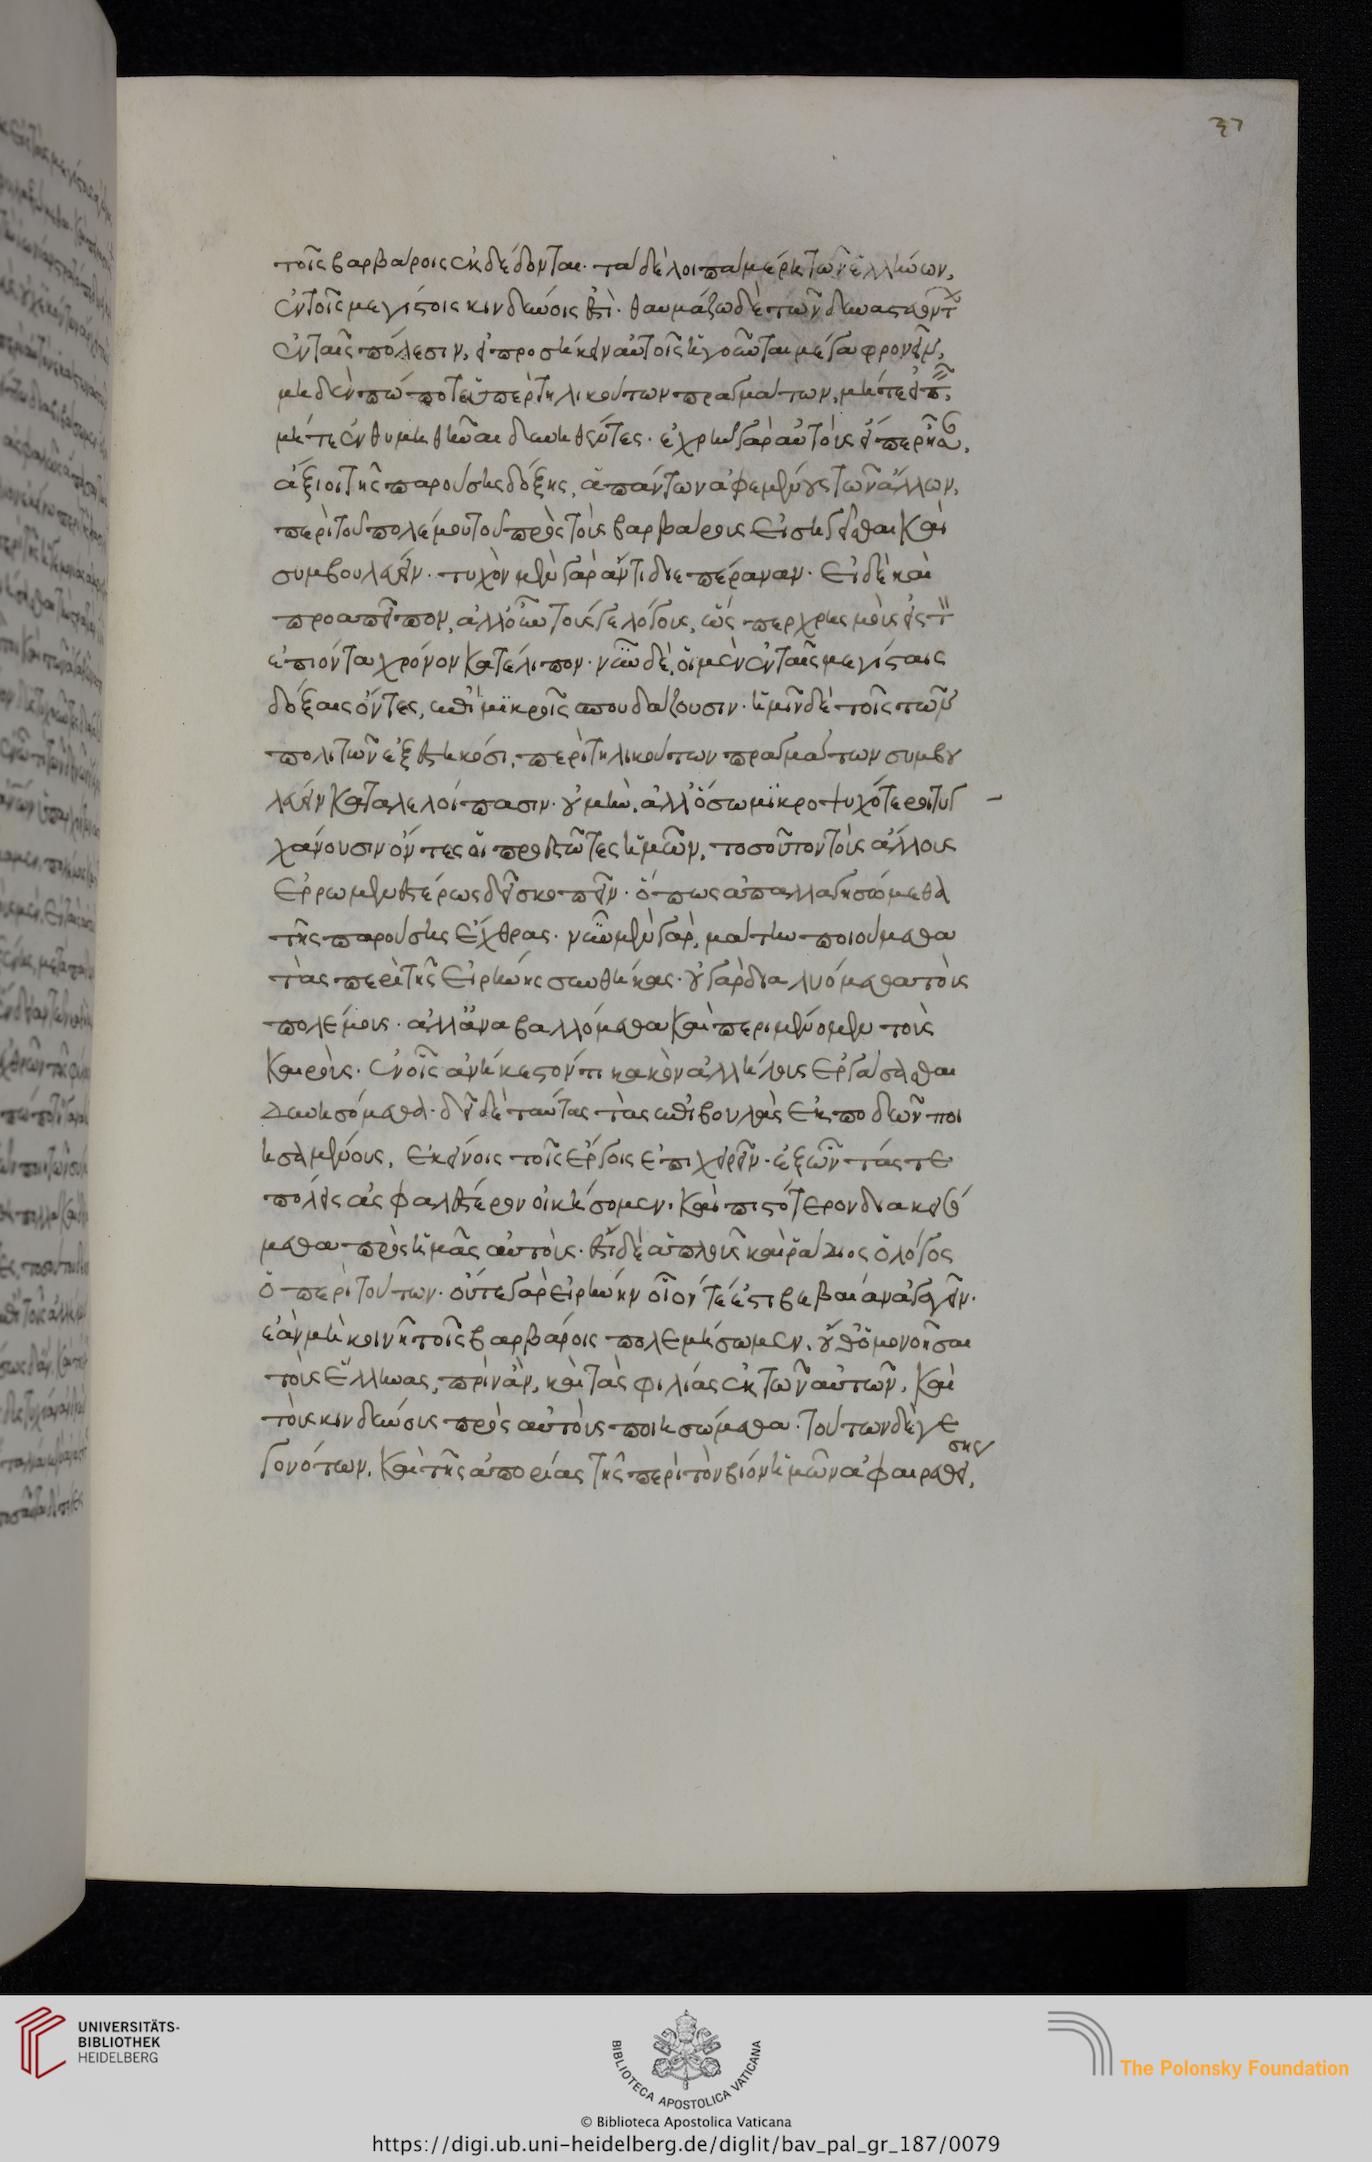 37
τοῖς βαρβάροις ἐκδέδονται· τὰ δὲ λοιπὰ μέρη τῶν ἑλλήνων,
ἐν τοῖς μεγίστοις κινδύνοις ἐστί· θαυμάζω δὲ τῶν δυναστευόντων
ἐν ταῖς πόλεσιν, εἰ προσήκειν αὐτοῖς ἡγοῦνται μέγα φρονεῖν,
μηδὲν πώποτε ὑπὲρ τηλικούτων πραγμάτων, μήτε εἰπεῖν,
μήτε ἐνθυμηθῆναι δυνηθέντες· ἐχρῆν γὰρ αὐτοὺς εἴπερ ἦσαν,
ἄξιοι τῆς παρούσης δόξης, ἁπάντων ἀφεμένους τῶν ἄλλων,
περὶ τοῦ πολέμου τοῦ πρὸς τοὺς βαρβάρους εἰσηγεῖσθαι καὶ
συμβουλεύειν· τυχὸν μὲν γὰρ ἄν τι διεπέραναν· εἰ δὲ καὶ
προαπεῖπον, ἀλλ' οὖν τούς γε λόγους, ὥσπερ χρησμοὺς εἰς τὸν
ἐπιόντα χρόνον κατέλιπον· νῦν δὲ, οἱ μὲν ἐν ταῖς μεγίσταις
δόξαις ὄντες, ἐπὶ μικροῖς σπουδάζουσιν· ἡμῖν δὲ τοῖς τῶν
πολιτῶν ἐξεστηκόσι, περὶ τηλικούτων πραγμάτων συμβου
λεύειν καταλελοίπασιν· οὐ μὴν, ἀλλ' ὅσω μικροψυχότεροι τυγ
χάνουσιν ὄντες οἱ προεστῶτες ἡμῶν, τοσοῦτον τοὺς ἄλλους
ἐρρωμενεστέρως δεῖ σκοπεῖν· ὅπως ἀπαλλαγησόμεθα
τῆς παρούσης ἔχθρας· νῦν μὲν γὰρ, μάτην ποιούμεθα
τὰς περὶ τῆς εἰρήνης συνθήκας· οὐ γὰρ διαλυόμεθα τοὺς
πολέμους· ἀλλ' ἀναβαλλόμεθα καὶ περιμένομεν τοὺς
καιρούς· ἐν οἷς ἀνήκεστόν τι κακὸν ἀλλήλους ἐργάσασθαι
δυνησόμεθα· δεῖ δὲ ταύτας τὰς ἐπιβουλὰς ἐκποδὼν ποι
ησαμένους, ἐκείνοις τοῖς ἔργοις ἐπιχειρεῖν· ἐξ ὧν τάς τε
πόλεις ἀσφαλέστερον οἰκήσομεν· καὶ πιστότερον διακεισό
μεθα πρὸς ἡμᾶς αὐτούς· ἔστι δὲ ἁπλοῦς καὶ ῥάδιος ὁ λόγος
ὁ περὶ τούτων· οὔτε γὰρ εἰρήνην οἷόν τέ ἐστι βεβαίαν ἀγαγεῖν·
ἐὰν μὴ κοινῇ τοῖς βαρβάροις πολεμήσωμεν, οὔθ' ὁμονοῆσαι
τοὺς ἕλληνας, πρὶν ἂν, καὶ τὰς φιλίας ἐκ τῶν αὐτῶν, καὶ
τοὺς κινδύνους πρὸς αὐτοὺς ποιησώμεθα· τούτων δὲ γε
γονότων, καὶ τῆς ἀπορίας τῆς περὶ τὸν βίον ἡμῶν ἀφαιρεθεί,
σης
UNIVERSITÄTS-
BIBLIOTHEK
HEIDELBERG
BIBLIOTECA APOSTOLICA VATICANA
The Polonsky Foundation
© Biblioteca Apostolica Vaticana
https://digi.ub.uni-heidelberg.de/diglit/bav_pal_gr_187/0079